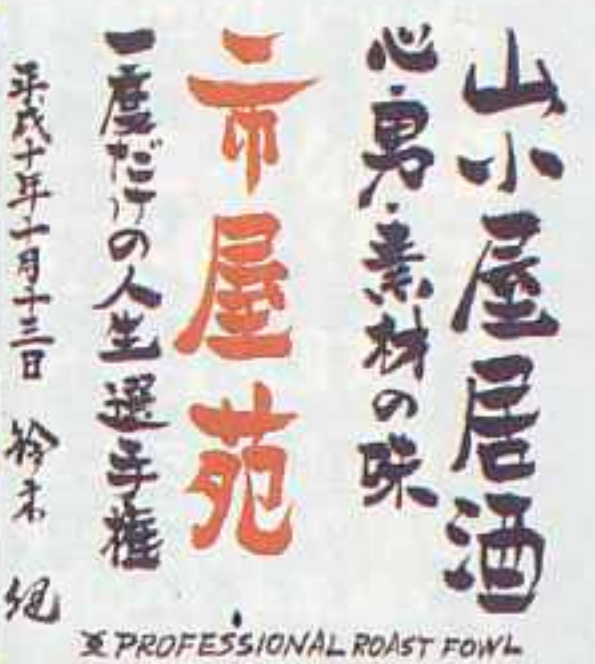 山小屋居酒
心・勇・素材の味
市屋苑
一度だけの人生選手権
平成十年十一月十三日 鈴木
PROFESSIONAL ROAST FOWL